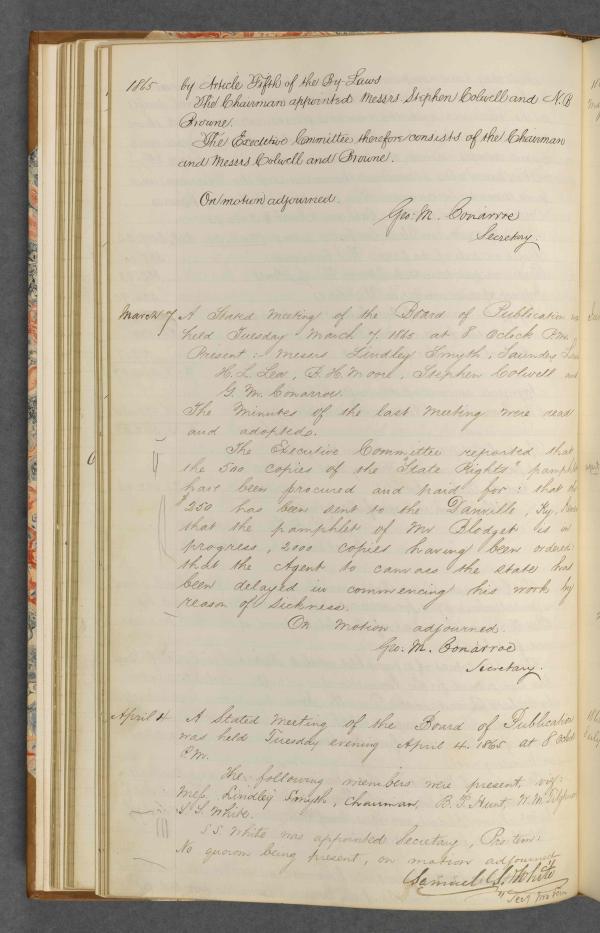 1865 by Article Fifth of the By-Laws
The Chairman appointed Messrs. Stephen Colwell and N.B
Browne.
The Executive Committee therefore consists of the Chairman
and Messrs Colwell and Browne.
On motion adjourned.
Geo. M. Conarroe
Secretary.
March 7 A Stated meeting of the Board of Publication
held Tuesday March 7. 1865 at 8 Oclock P.M.
Present: Messrs Lindley Smyth, Saunders
H. L. Lea, F. H. Moore, Stephen Colwell and
G. M. Conarroe.
The Minutes of the last meeting were read
and adopted.
The Executive Committee reported that
the 500 copies of the "State Rights" pamphlet
have been procured and paid for: that the
$250 has been sent to the Danville, Ky,
that the pamphlet of Mr Blodget is in
progress, 2000 copies having been ordered:
that the Agent to canvass the state has
been delayed in commencing his work by
reason of sickness.
On motion adjourned.
Geo. M. Conarroe
Secretary.
April 4 A Stated meeting of the Board of Publication
was held Tuesday evening April 4. 1865 at 8 Oclock
P.M.
The following members were present, viz:
Mess. Lindley Smyth, Chairman, B. F. Hunt, W. M.
S. S. White.
S S. White was appointed Secretary, Pro tem:
No quorum being present, on motion adjourned
Samuel S. White
Secy Pro tem